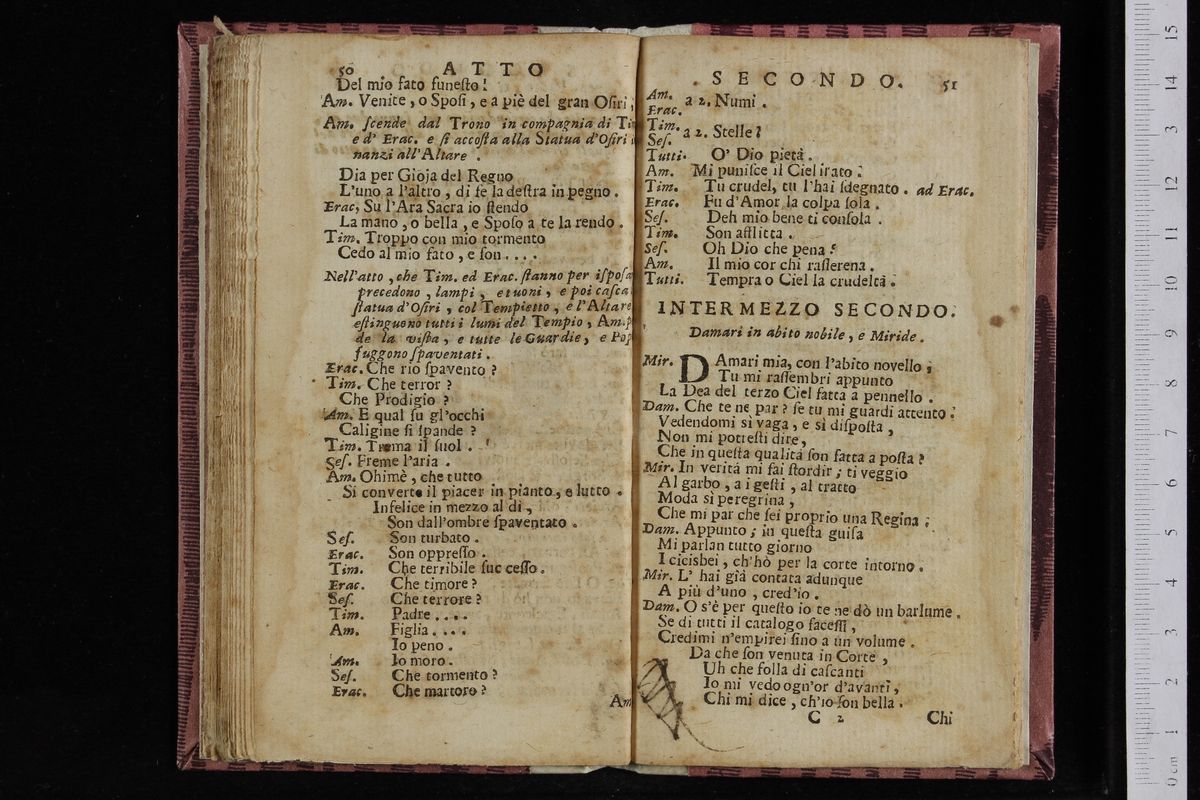 50 ATTO
Del mio fato funeſto!
Am. Venite, o Spoſi, e a piè del gran Oſiri,
Am. ſcende dal Trono in compagnia di
e d' Erac. e ſi accoſta alla Statua d'Oſiri
nanzi all'Altare.
Dia per Gioja del Regno
L'uno a l'altro, di ſe la deſtra in pegno.
Erac, Su l'Ara Sacra io ſtendo
La mano, o bella, e Spoſo a te la rendo.
Tim. Troppo con mio tormento
Cedo al mio fato, e ſon....
Nell'atto, che Tim. ed Erac. ſtanno per iſpoſa
precedono, lampi, e tuoni, e poi caſca
ſtatua d'Oſiri, col Tempietto, e l'Altare
eſtinguono tutti i lumi del Tempio, Am. p
de la viſta, e tutte le Guardie, e Pop
fuggono ſpaventati.
Erac. Che rio ſpavento?
Tim. Che terror?
Che Prodigio?
Am. E qual ſu gl'occhi
Caligine ſi ſpande?
Tim. Trema il ſuol.
Seſ. Freme l'aria.
Am. Ohimè, che tutto
Si converte il piacer in pianto, e lutto.
Infelice in mezzo al di,
Son dall'ombre ſpaventato.
Seſ. Son turbato.
Erac. Son oppreſſo.
Tim. Che terribile ſucceſſo.
Erac. Che timore?
Seſ. Che terrore?
Tim. Padre....
Am. Figlia....
Io peno.
Am. Io moro.
Seſ. Che tormento?
Erac. Che martoro?
Am
SECONDO. 51
Am.
Erac. a 2. Numi.
Tim.
Seſ. a 2. Stelle?
Tutti. O' Dio pietà.
Am. Mi puniſce il Ciel irato:
Tim. Tu crudel, tu l'hai ſdegnato. ad Erac.
Erac. Fu d'Amor la colpa ſola.
Seſ. Deh mio bene ti conſola.
Tim. Son afflitta.
Seſ. Oh Dio che pena?
Am. Il mio cor chi raſſerena.
Tutti. Tempra o Ciel la crudeltà.
INTERMEZZO SECONDO.
Damari in abito nobile, e Miride.
Mir. DAmari mia, con l'abito novello;
Tu mi raſſembri appunto
La Dea del terzo Ciel fatta a pennello.
Dam. Che te ne par? ſe tu mi guardi attento:
Vedendomi sì vaga, e sì diſpoſta,
Non mi potreſti dire,
Che in queſta qualità ſon fatta a poſta?
Mir. In verità mi fai ſtordir; ti veggio
Al garbo, a i geſti, al tratto
Moda sì peregrina,
Che mi par che ſei proprio una Regina;
Dam. Appunto; in queſta guiſa
Mi parlan tutto giorno
I cicisbei, ch'hò per la corte intorno.
Mir. L' hai già contata adunque
A più d'uno, cred'io.
Dam. O s'è per queſto io te ne dò un barlume.
Se di tutti il catalogo faceſſi,
Credimi n'empirei ſino a un volume.
Da che ſon venuta in Corte,
Uh che folla di caſcanti
Io mi vedo ogn'or d'avanti,
Chi mi dice, ch'io ſon bella.
C 2 Chi
15
14
13
12
11
10
9
8
7
6
5
4
3
2
1
0 cm